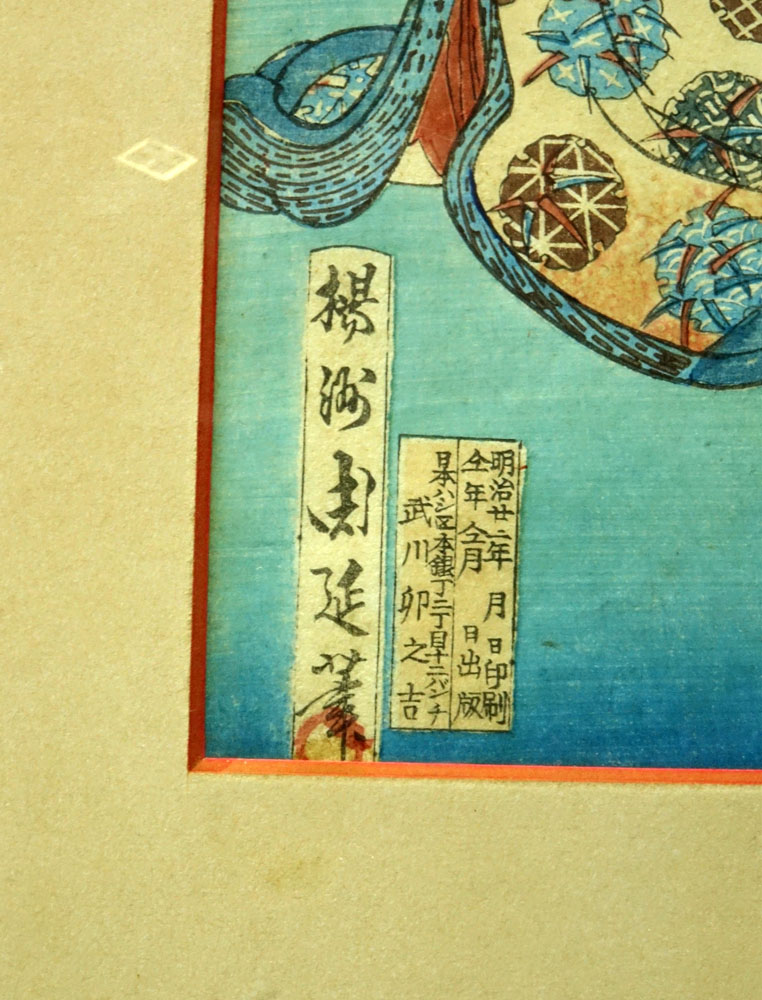 楊洲周延筆
明治廿二年 月 日印刷
仝年仝月 日出版
日本ハシ区本銀丁二丁目十二バンチ
武川卯之吉